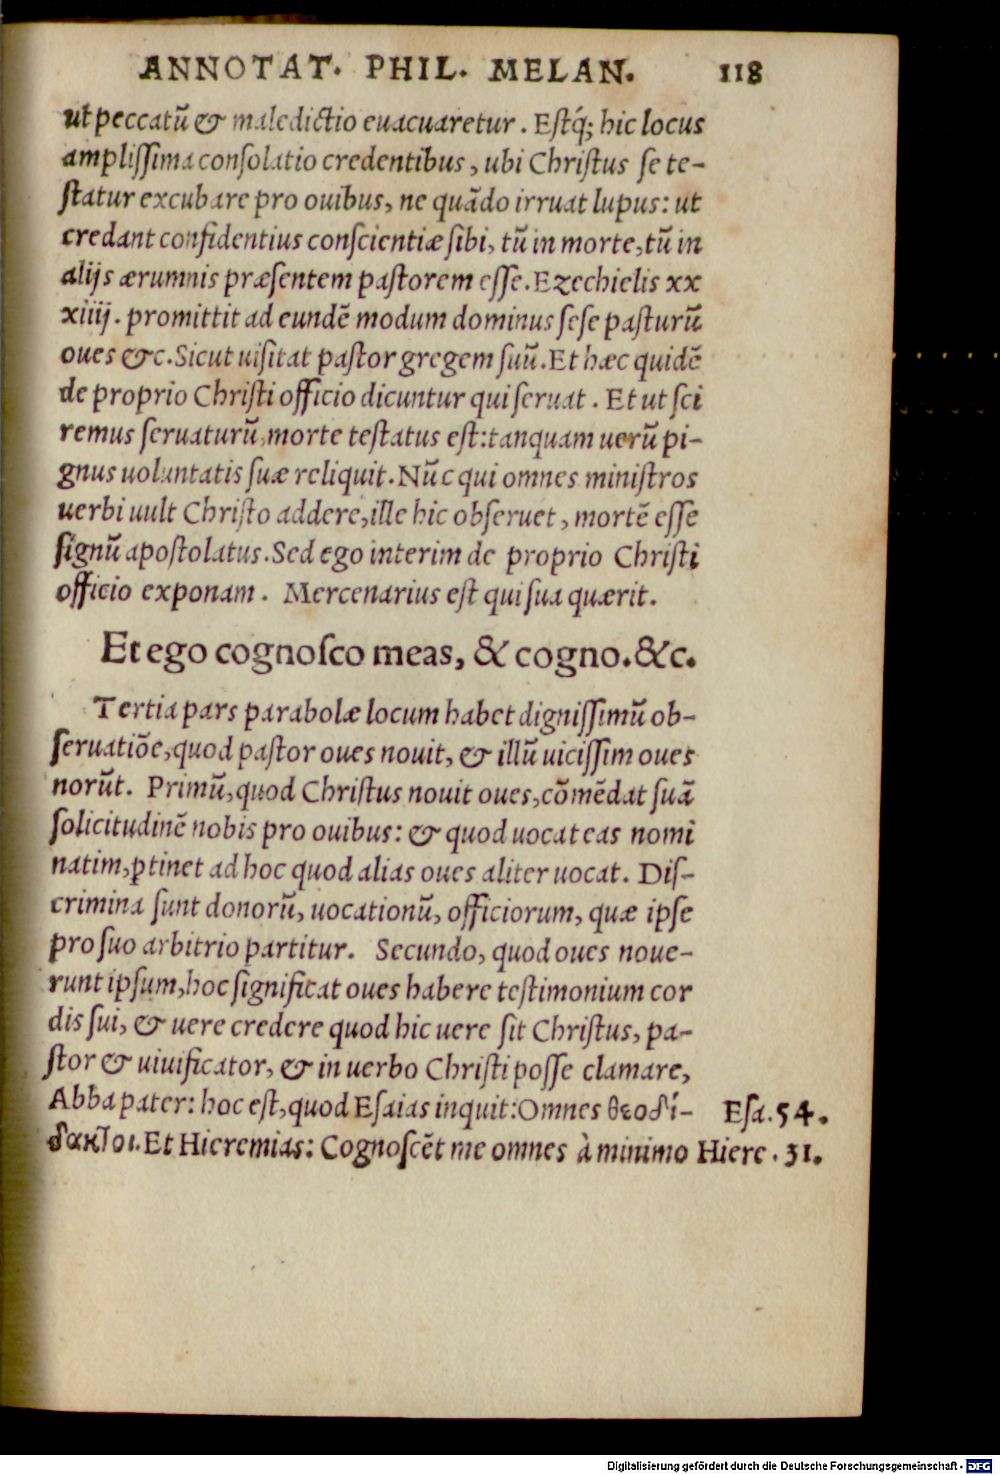 ANNOTAT. PHIL. MELAN. 118
ut peccatū & maledictio euacuaretur. Estq́; hic locus
amplißima consolatio credentibus, ubi Christus se te-
statur excubare pro ouibus, ne quādo irruat lupus: ut
credant confidentius conscientiæ sibi, tū in morte, tū in
alijs ærumnis præsentem pastorem esse. Ezechielis xx
xiiij. promittit ad eundē modum dominus sese pasturū
oues &c. Sicut uisitat pastor gregem suū. Et hæc quidē
de proprio Christi officio dicuntur qui seruat. Et ut sci
remus seruaturū, morte testatus est: tanquam uerū pi-
gnus uoluntatis suæ reliquit. Nūc qui omnes ministros
uerbi uult Christo addere, ille hic obseruet, mortē esse
signū apostolatus. Sed ego interim de proprio Christi
officio exponam. Mercenarius est qui sua quærit.
Et ego cognosco meas, & cogno. &c.
Tertia pars parabolæ locum habet dignißimū ob-
seruatiōe, quod pastor oues nouit, & illū uicißim oues
norūt. Primū, quod Christus nouit oues, cōmēdat suā
solicitudinē nobis pro ouibus: & quod uocat eas nomi
natim, ꝑtinet ad hoc quod alias oues aliter uocat. Dis-
crimina sunt donorū, uocationū, officiorum, quæ ipse
pro suo arbitrio partitur. Secundo, quod oues noue-
runt ipsum, hoc significat oues habere testimonium cor
dis sui, & uere credere quod hic uere sit Christus, pa-
stor & uiuificator, & in uerbo Christi posse clamare,
Abba pater: hoc est, quod Esaias inquit: Omnes θεοδί- Esa. 54.
δακτοι. Et Hieremias: Cognoscēt me omnes à minimo Hiere. 31.
Digitalisierung gefördert durch die Deutsche Forschungsgemeinschaft - DFG